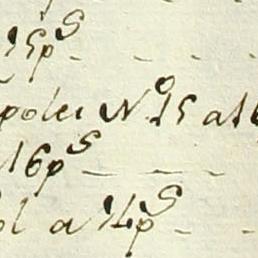 15p^s
poles N^o 15 a 16
16p^s
d a 14p^s